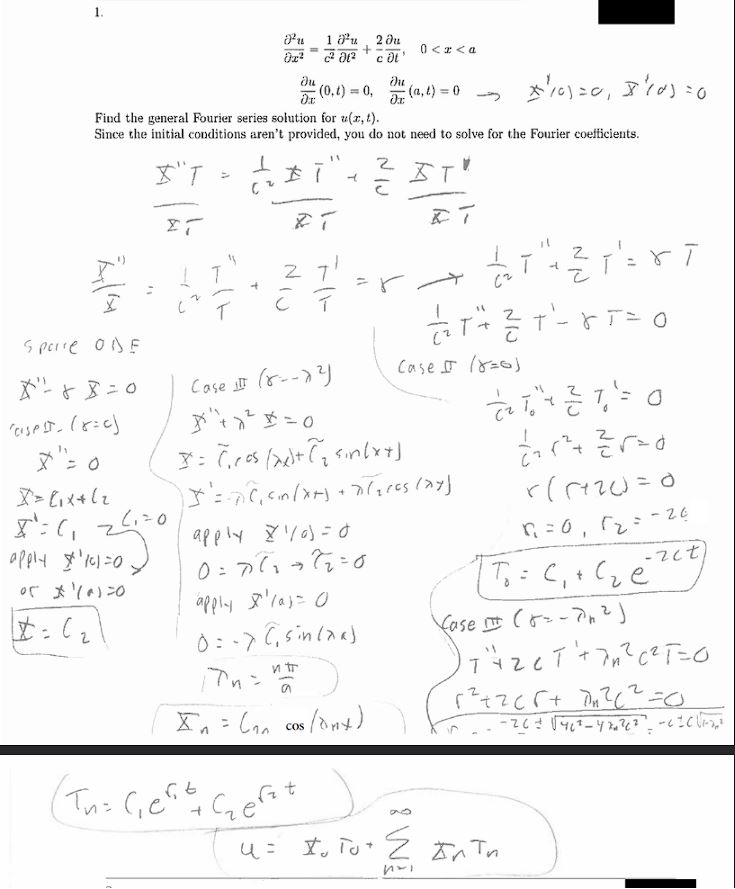 1.
∂²u/∂x² = 1/c² ∂²u/∂t² + 2/c ∂u/∂t, 0 < x < a
∂u/∂x (0, t) = 0, ∂u/∂x (a, t) = 0 → X'(0)=0, X'(a)=0
Find the general Fourier series solution for u(x, t).
Since the initial conditions aren't provided, you do not need to solve for the Fourier coefficients.
X''T/XT = 1/c² XT''/XT + 2/c XT'/XT
X''/X = 1/c² T''/T + 2/c T'/T = γ → 1/c² T'' + 2/c T' = γT
1/c² T'' + 2/c T' - γT = 0
Space ODE
X'' - γX = 0
Case II (γ=0)
X'' = 0
X = C₁x + C₂
X' = C₁ C₁ = 0
apply X'(0)=0
or X'(a)=0
X = C₂
Case III (γ=-λ²)
X'' + λ²X = 0
X = C̃₁cos(λx) + C̃₂sin(λx)
X' = -λC̃₁sin(λx) + λC̃₂cos(λx)
apply X'(0) = 0
0 = λC̃₂ → C̃₂ = 0
apply X'(a) = 0
0 = -λC̃₁sin(λa)
λn = nπ/a
Xn = C₁n cos(λnx)
Case II (γ=0)
1/c² T₀'' + 2/c T₀' = 0
1/c² r² + 2/c r = 0
r(r+2c) = 0
r₁ = 0, r₂ = -2c
T₀ = C₁ + C₂e^(-2ct)
Case III (γ=-λn²)
T'' + 2cT' + λn²c²T = 0
r² + 2cr + λn²c² = 0
-2c ± √(4c²-4λn²c²) -c±c√(1-λn²)
Tn = C₁e^(r₁t) + C₂e^(r₂t)
u = X₀T₀ + ∑ n=1 ∞ XnTn